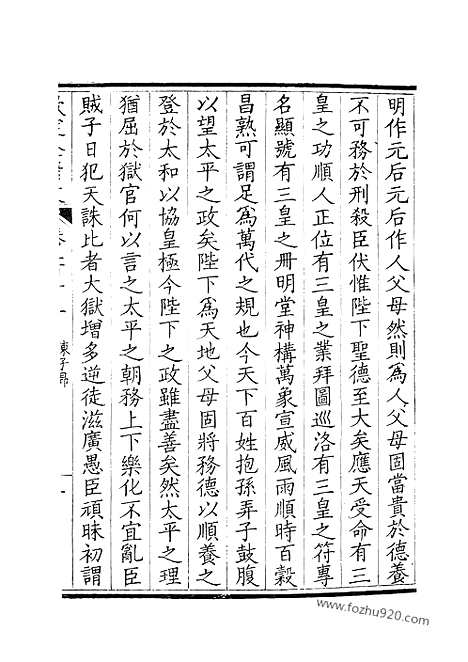 明作元后元后作人父母然則為人父母固當貴於德養
不可務於刑殺臣伏惟陛下聖德至大矣應天受命有三
皇之功順人正位有三皇之業拜圖巡洛有三皇之符專
名顯號有三皇之冊明堂神構萬象宣威風雨順時百穀
昌熟可謂足為萬代之規也今天下百姓抱孫弄子鼓腹
以望太平之政矣陛下為天地父母固將務德以順養之
登於太和以協皇極今陛下之政雖盡善矣然太平之理
猶屈於獄官何以言之太平之朝務上下樂化不宜亂臣
賊子日犯天誅比者大獄增多逆徒滋廣愚臣頑昧初謂
陳子昂
www.fozhu920.com